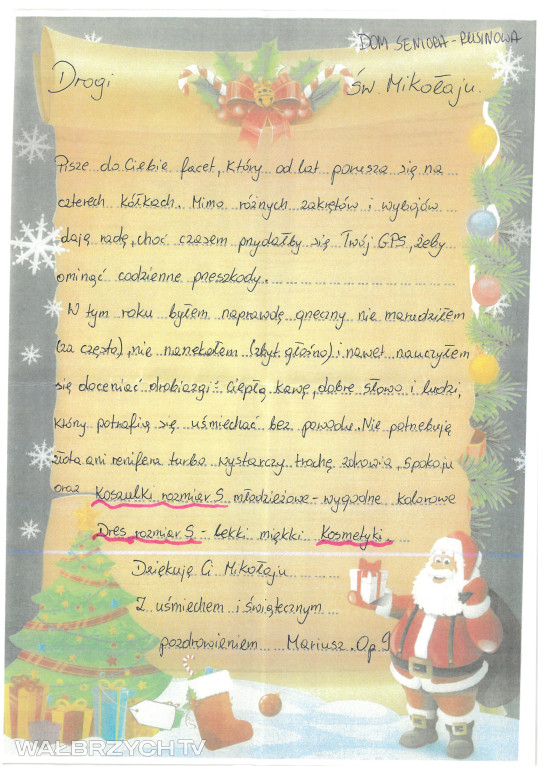 DOM SENIORA - RUSINOWA
Drogi św. Mikołaju.
Pisze do Ciebie facet, który od lat porusza się na
czterech kółkach. Mimo różnych zakrętów i wybojów
daję radę, choć czasem przydałby się Twój GPS, żeby
ominąć codzienne przeszkody.
W tym roku byłem naprawdę grzeczny nie marudziłem
(za często), nie narzekałem (zbyt głośno) i nawet nauczyłem
się doceniać drobiazgi: ciepłą kawę, dobre słowo i ludzi,
który potrafią się uśmiechać bez powodu. Nie potrzebuję
złota ani renifera turbo wystarczy trochę zdrowia, spokoju
oraz Koszulki rozmiar S młodzieżowe - wygodne kolorowe
Dres rozmiar S - lekki miękki Kosmetyki.
Dziękuję Ci Mikołaju
Z uśmiechem i świątecznym
pozdrowieniem Mariusz. Op. 9
WAŁBRZYCH TV